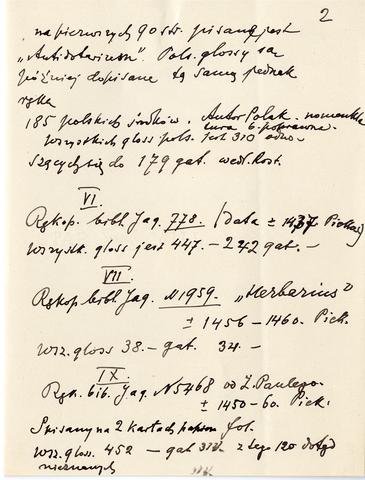 2
na pierwszych 90 str. pisany jest
„Antidotarium". Pols. glossy są
później dopisane tą samą jednak
ręką
185 polskich środków. Autor Polak. nomenkla
tura b. poprawna.
Wszystkich gloss pols. jest 310 odno-
szących się do 179 gat. wedł. Rost.
VI.
Rękop. bibl. Jag. 778. /data ± 1437 
Wszystk. gloss jest 447. – 242 gat. –
VII.
Rękop. bibl. Jag. N 1959. „Herbarius"
± 1456 – 1460. Piek.
Wsz. gloss 38. – gat. 34. –
IX.
Ręk. bib. Jag. N 5468 od Ż. Paulego.
± 1450–60. Piek.
Spisany na 2 kartach fol.
Wsz. gloss. 452 – gat z tego 120 dotąd
nieznanych